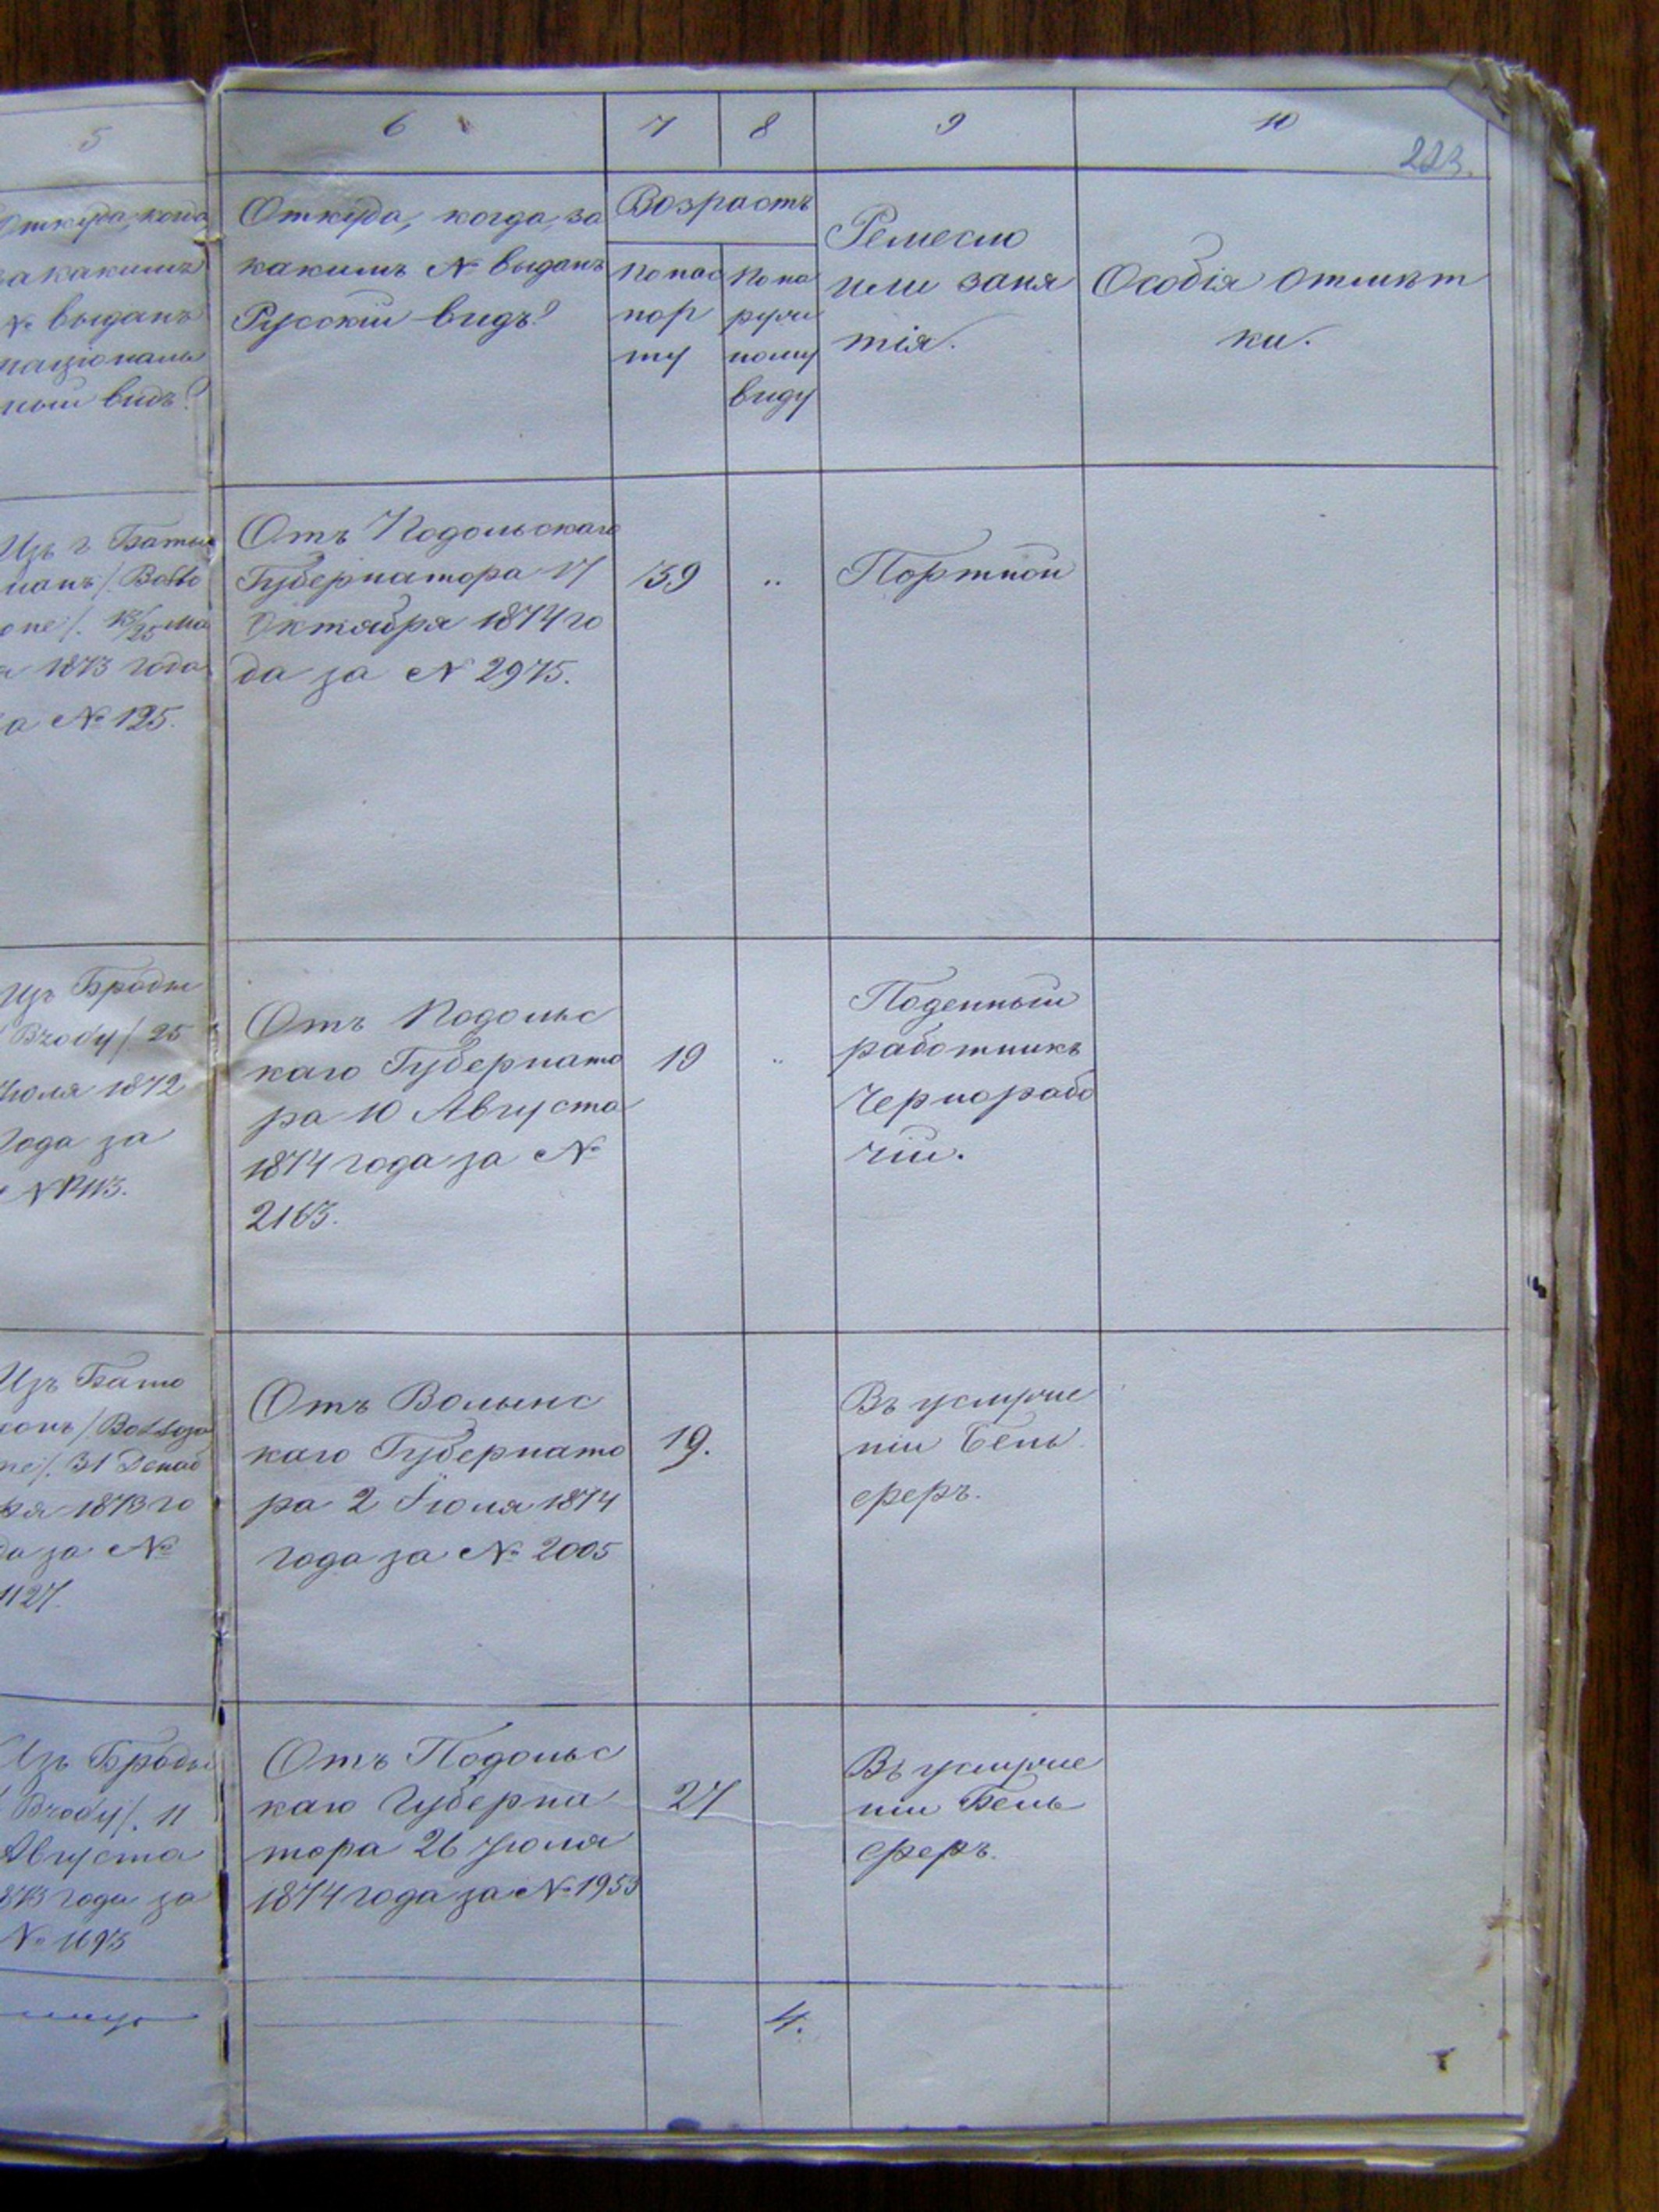 5
6
7
8
9
10
223.
Откуда, когда
за какимъ
№ выданъ
національ
ный видъ?
Откуда, когда, за
какимъ № выданъ
Русскій видъ?
Возрастъ
По пас
пор
ту
По на
ружн
ному
виду
Ремесло
или заня
тія.
Особія отмѣт
ки.
Изъ г
1873 года
за № 125.
Отъ Подольскаго
Губернатора 17
Октября 1874 го
да за № 2975.
39
"
Портной
Изъ Броды
/Brody/ 25
Іюля 1872
года за
Отъ Подольс
каго Губернато
ра 10 Августа
1874 года за №
2163.
19
"
Поденный
работникъ
Чернорабо
чій.
Изъ
31 Декаб
ря 1873 го
да за №
1127.
Отъ Волынс
каго Губернато
ра 2 Іюля 1874
года за № 2005
19.
Въ услуже
ніи
Изъ Броды
/Brody/. 11
Августа
1873 года за
№ 1693
Отъ Подольс
каго Губерна
тора 26 Іюля
1874 года за № 1953
27
Въ услуже
ніи
4.